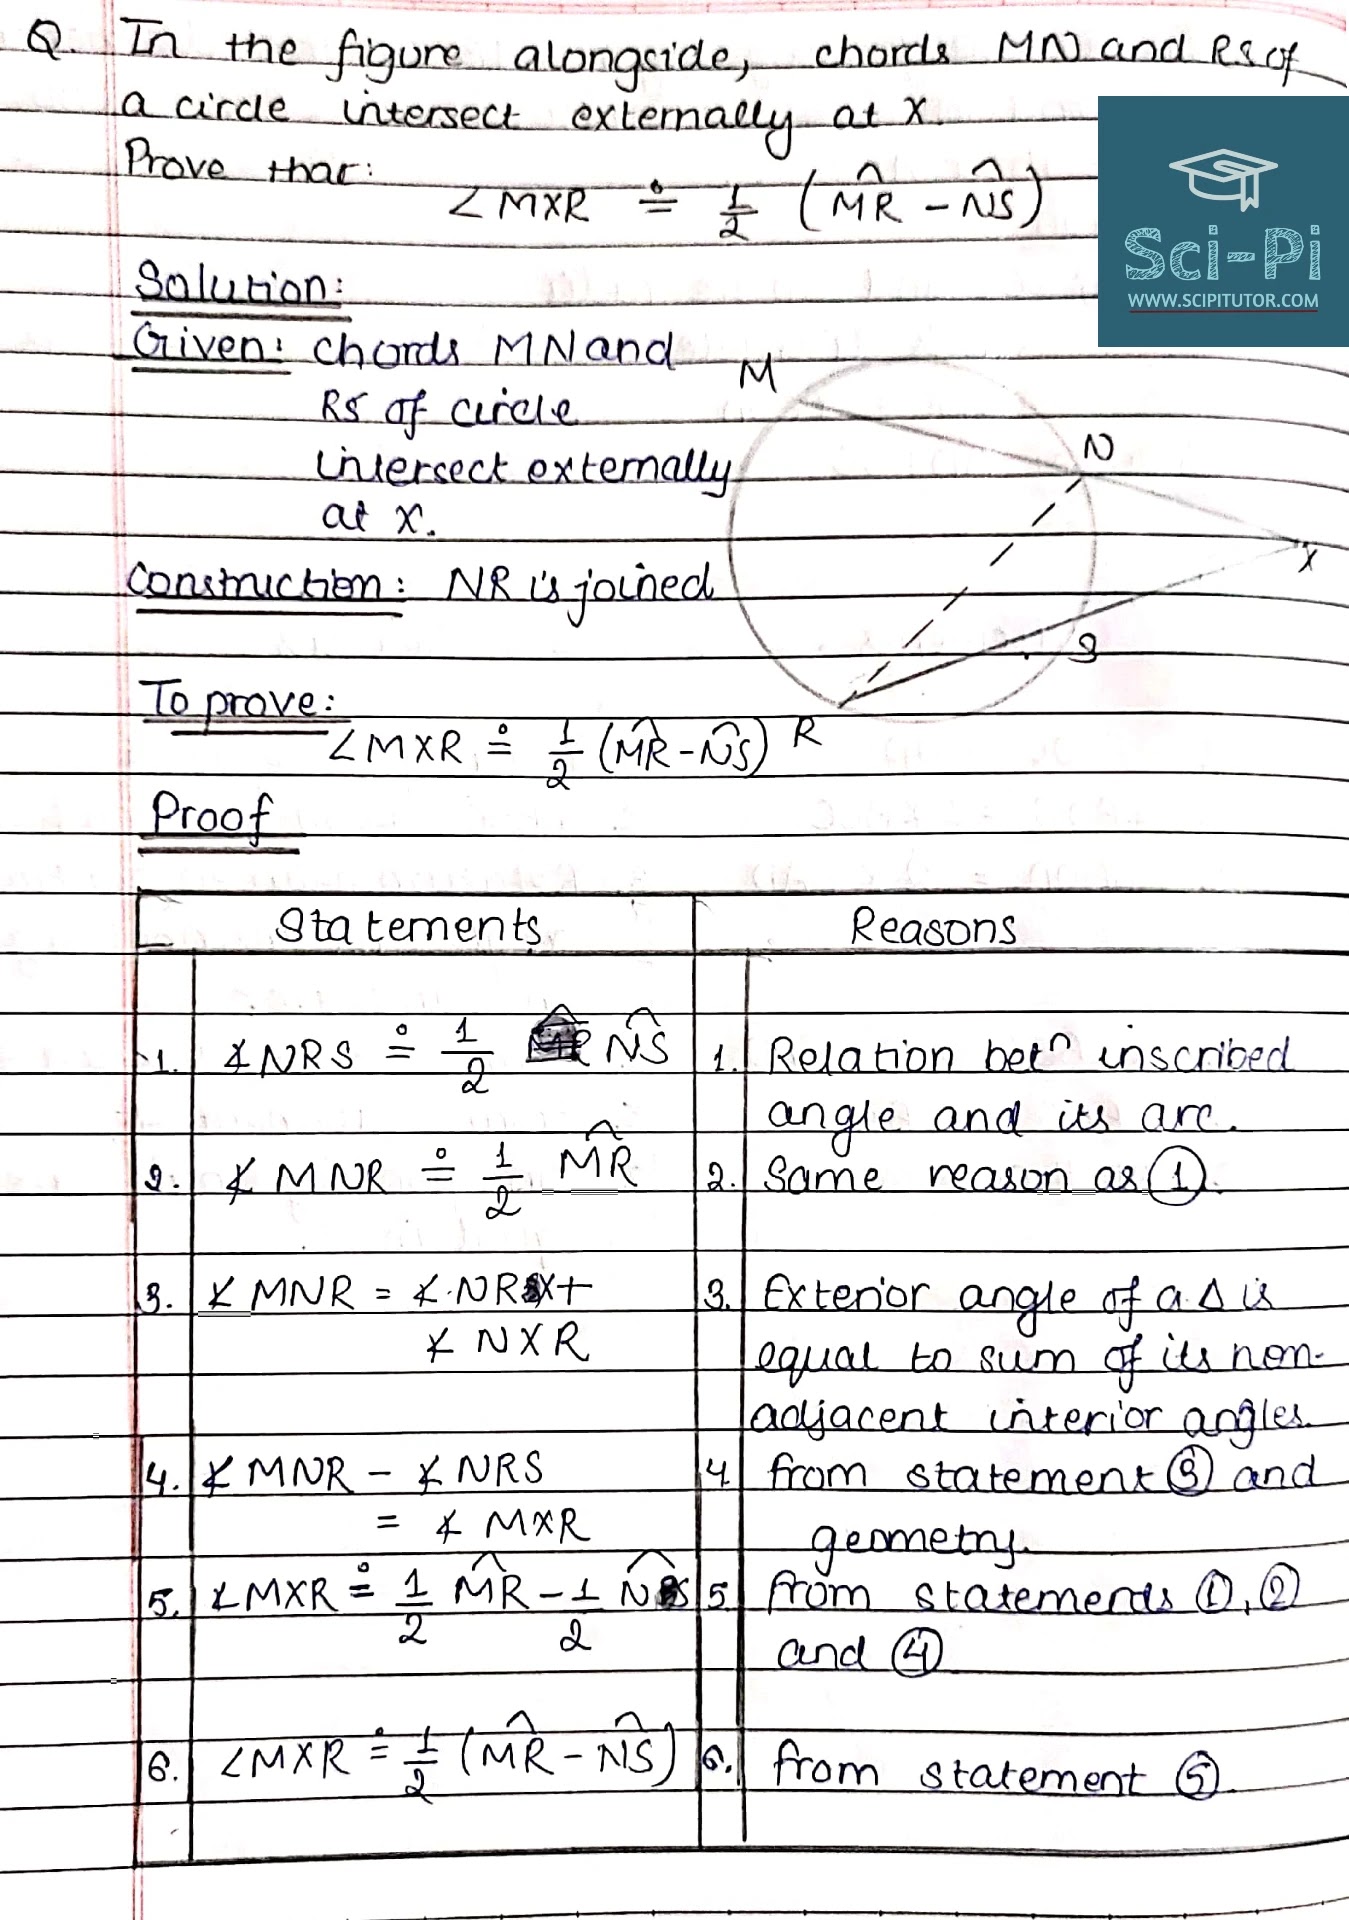 Q. In the figure alongside, chords MN and RS of
a circle intersect externally at X.
Prove that:
∠MXR ≗ 1/2 (M͡R - N͡S)
Sci-Pi
WWW.SCIPITUTOR.COM
Solution:
Given: chords MN and
RS of circle
intersect externally
at X.
Construction: NR is joined
M
N
X
S
R
To prove:
∠MXR ≗ 1/2 (M͡R - N͡S)
Proof
Statements
Reasons
1. ∡NRS ≗ 1/2 N͡S
1. Relation betⁿ inscribed
angle and its arc.
2. ∡MNR ≗ 1/2 M͡R
2. Same reason as ①.
3. ∡MNR = ∡NRX +
∡NXR
3. Exterior angle of a Δ is
equal to sum of its non-
adjacent interior angles.
4. ∡MNR - ∡NRS
= ∡MXR
4. from statement ③ and
geometry.
5. ∠MXR ≗ 1/2 M͡R - 1/2 N͡S
5. from statements ①, ②
and ④
6. ∠MXR ≗ 1/2 (M͡R - N͡S)
6. from statement ⑤.